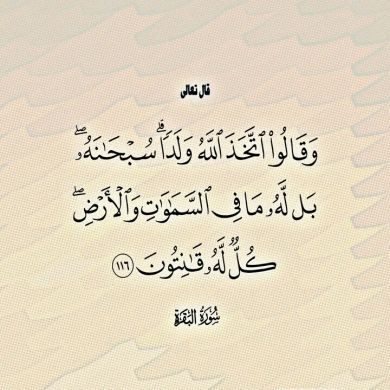 قال تعالى
وَقَالُوا۟ ٱتَّخَذَ ٱللَّهُ وَلَدًۭا ۗ سُبْحَـٰنَهُۥ ۖ
بَل لَّهُۥ مَا فِى ٱلسَّمَـٰوَٰتِ وَٱلْأَرْضِ ۖ
كُلٌّۭ لَّهُۥ قَـٰنِتُونَ ١١٦
سُورَةُ البَقَرَةِ